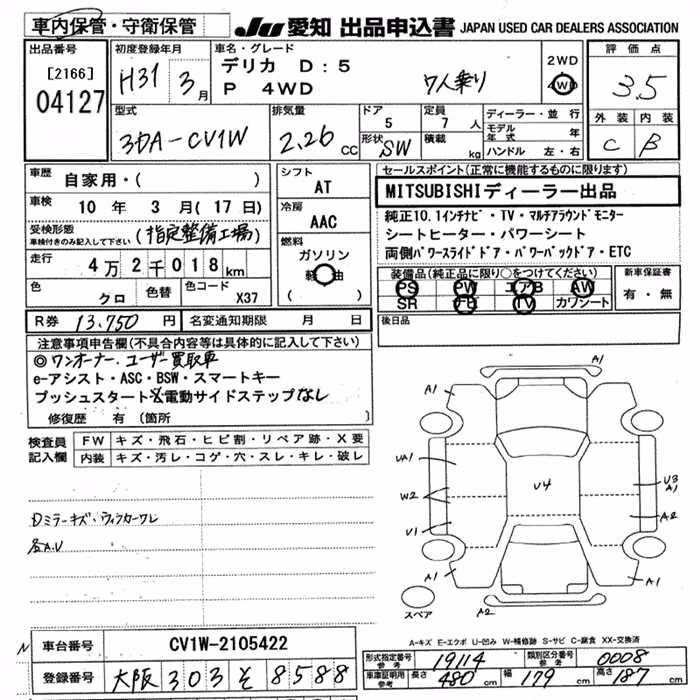 車内保管・守衛保管 JU 愛知 出品申込書 JAPAN USED CAR DEALERS ASSOCIATION
出品番号 初度登録年月 車名・グレード 評価点
[2166] H31 3月 デリカ D:5 2WD
04127 P 4WD 7人乗り 4WD 3.5
型式 排気量 ドア 定員 ディーラー・並行 外装 内装
3DA-CV1W 2.26 CC 5 7人 モデル年式 年 C B
形状 SW 積載 kg ハンドル 左・右
車歴 自家用・( ) シフト AT セールスポイント(正常に機能するものに限ります)
車検 10年3月(17日) 冷房 AAC MITSUBISHIディーラー出品
受検形態 (指定整備工場) 純正10.1インチナビ・TV・マルチアラウンドモニター
車検付きのみ記入して下さい 燃料 シートヒーター・パワーシート
走行 4万2千018km ガソリン 両側パワースライドドア・パワーバックドア・ETC
軽油 装備品(純正品に限り〇をつけてください) 新車保証書
色 クロ 色替 色コード X37 ( ) PS PW エアB AW 有・無
SR TV カワシート
R券 13,750円 名変通知期限 月 日 後日品
注意事項申告欄(不具合内容等は具体的に記入して下さい)
◎ワンオーナー、ユーザー買取車
e-アシスト・ASC・BSW・スマートキー
プッシュスタート 電動サイドステップなし
修復歴 有(箇所
検査員 FW キズ・飛石・ヒビ割・リペア跡・X要
記入欄 内装 キズ・汚レ・コゲ・穴・スレ・キレ・破レ
A1
A1 A1
UA1 U4 U3
W2 A1
U1 A2
A1 A1
スペア A2
Dミラーキズ・ウィンカーワレ
各A.U
A-キズ E-エクボ U-凹み W-補修跡 S-サビ C-腐食 XX-交換済
N 車台番号 CV1W-2105422 形式指定番号 参考 19114 類別区分番号 参考 0008
登録番号 大阪 303 そ 8588 車庫証明用 参考 長さ 480cm 幅 179cm 高さ 187cm